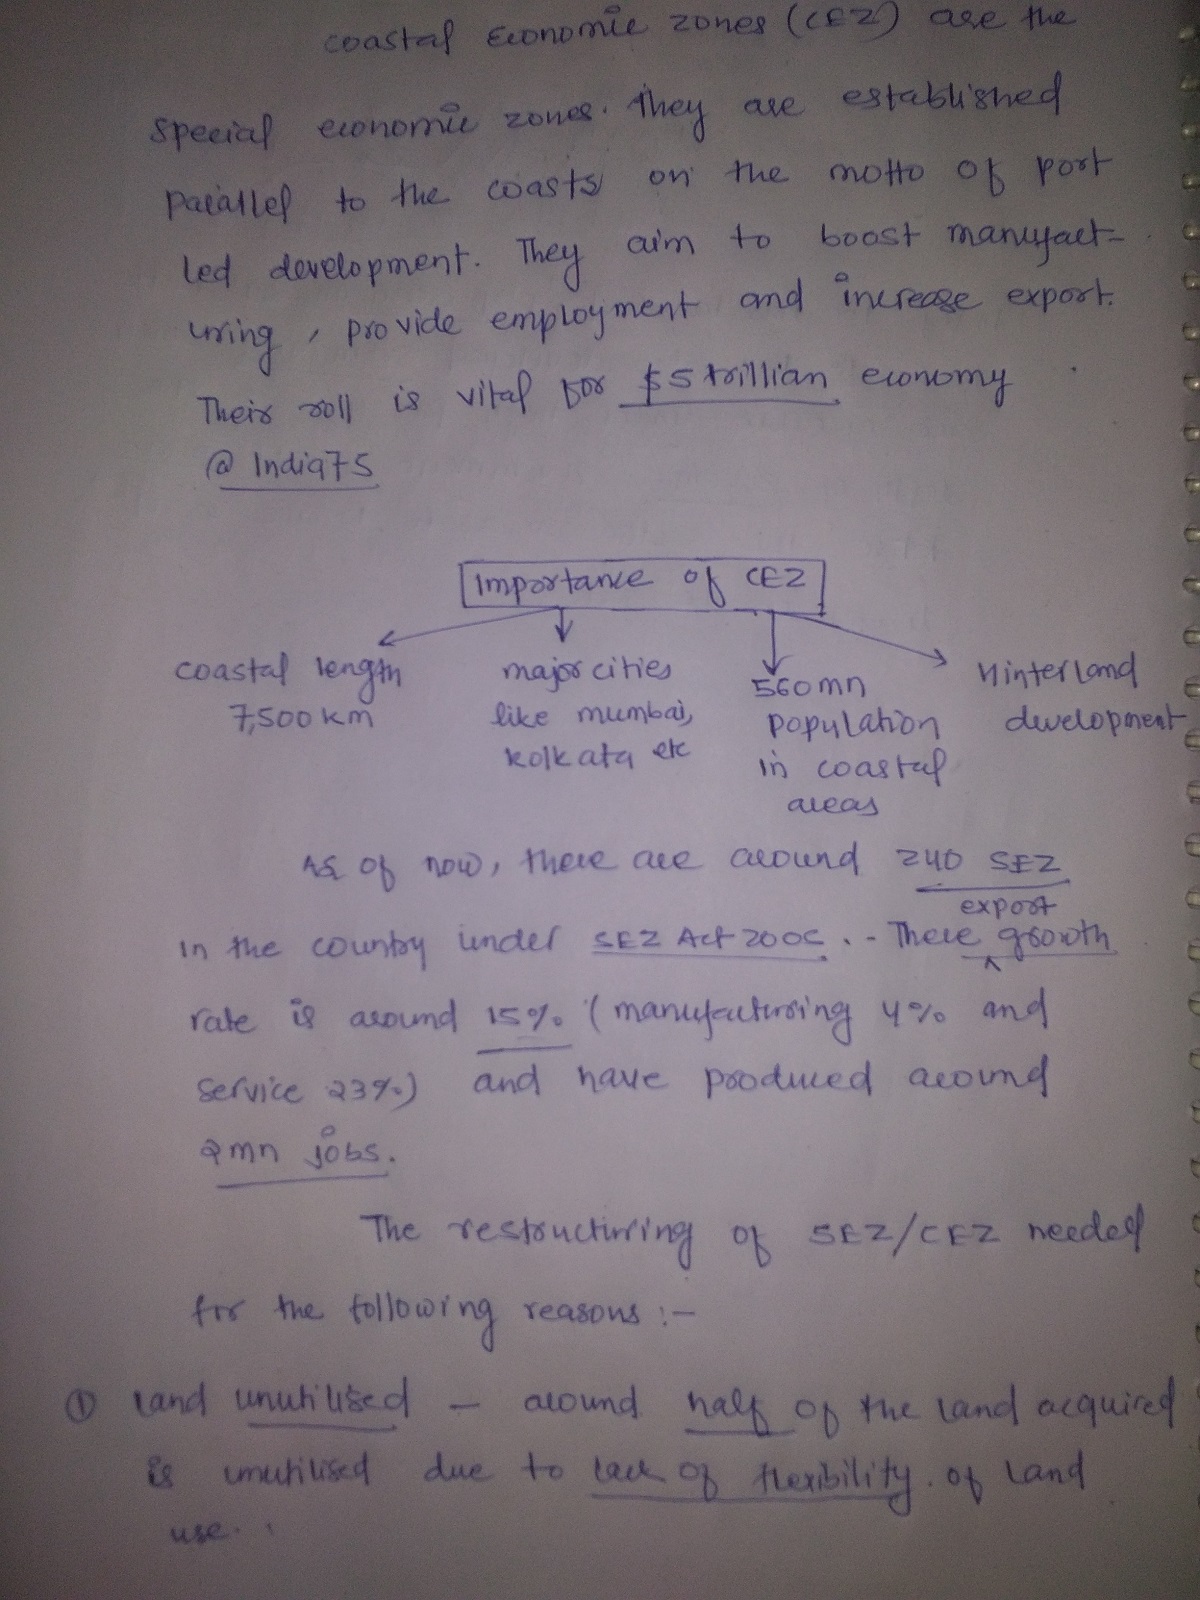 coastal economic zones (CEZ) are the
special economic zones. They are established
parallel to the coasts on the motto of port
led development. They aim to boost manufact-
uring, provide employment and increase export.
Their roll is vital for $5 trillian economy
@ India75
Importance of CEZ
coastal length
7,500 km
major cities
like mumbai,
kolkata etc
560 mn
population
in coastal
areas
Hinterland
development
As of now, there are around 240 SEZ
in the country under SEZ Act 2005. - There export growth
rate is around 15% (manufacturing 4% and
service 23%) and have produced around
2 mn jobs.
The restructuring of SEZ/CEZ needed
for the following reasons :-
① Land unutilised - around half of the land acquired
is unutilised due to lack of flexibility of land
use.